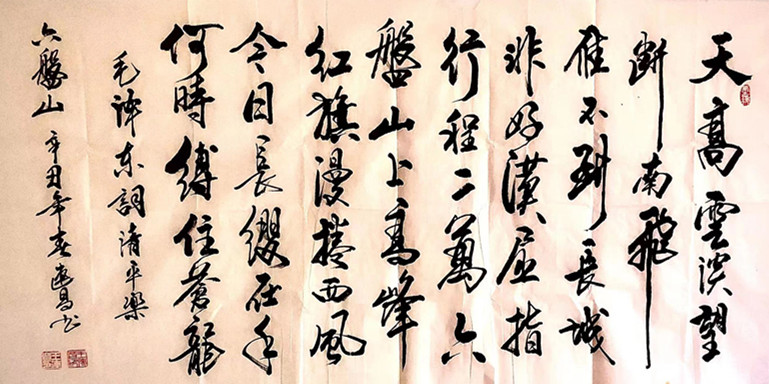 天高雲淡望
断南飛
雁不到長城
非好漢屈指
行程二萬六
盤山上高峰
红旗漫捲西風
今日長缨在手
何時縛住蒼龍
毛泽东詞清平樂
六盤山 辛丑年春昌书